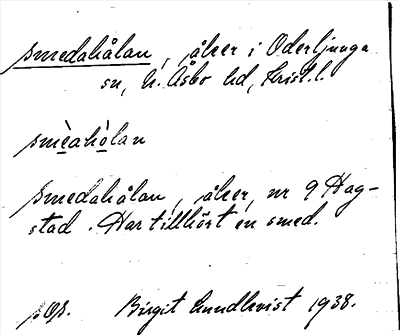 Smedahålan, åker i Oderljunga
sn, N. Åsbo hd, Krist. l.
smèahòlan
Smedahålan, åker, nr 9 Hag-
stad. Har tillhört en smed.
Birgit Lundkvist 1938.